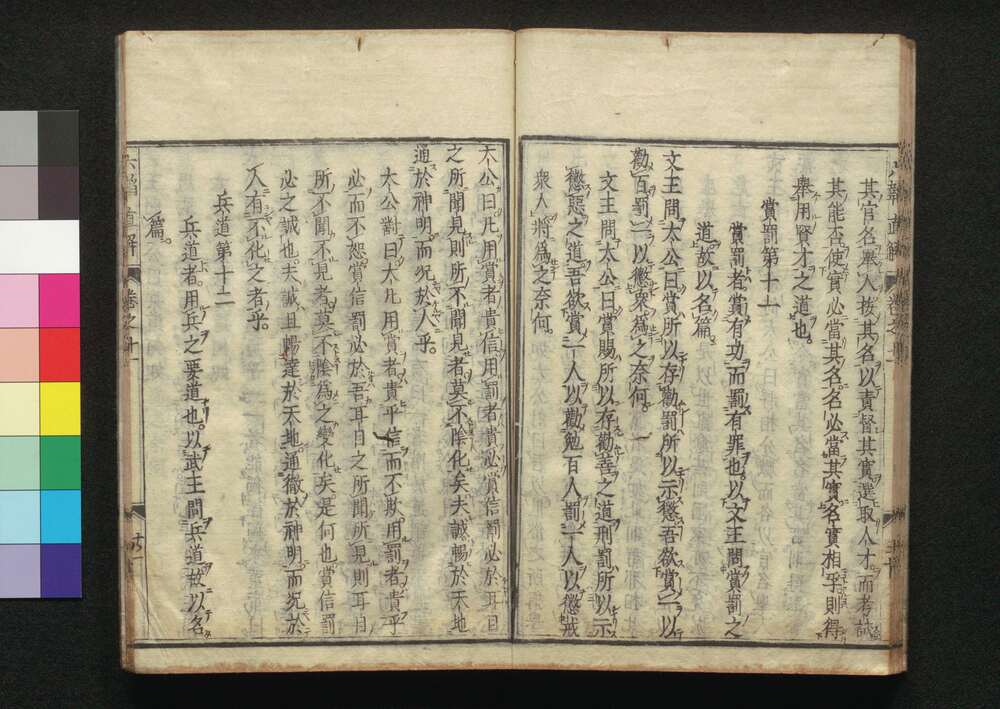 其官名舉人按其名以責督其實選取人才而考試
其能否使實必當其名名必當其實名實相孚則得
舉用賢才之道也
賞罰第十一
賞罰者賞有功而罰有罪也以文王問賞罰之
道故以名篇
文王問太公曰賞所以存勸罰所以示懲吾欲賞一以
勸百罰一以懲衆為之奈何
文王問太公曰賞賜所以存勸善之道刑罰所以示
懲惡之道吾欲賞一人以勸勉百人罰一人以懲戒
衆人將為之奈何
太公曰凡用賞者貴信用罰者貴必賞信罰必於耳目
之所聞見則所不聞見者莫不陰化矣夫誠暢於天地
通於神明而况於人乎
太公對曰大凡用賞者貴乎信而不欺用罰者貴乎
必而不恕賞信罰必於吾耳目之所聞所見則耳目
所不聞不見者莫不陰為之變化矣是何也賞信罰
必之誠也夫誠且暢達於天地通徹於神明而况於
人有不化之者乎
兵道第十二
兵道者用兵之要道也以武王問兵道故以名
篇
六韜直解
卷之十一